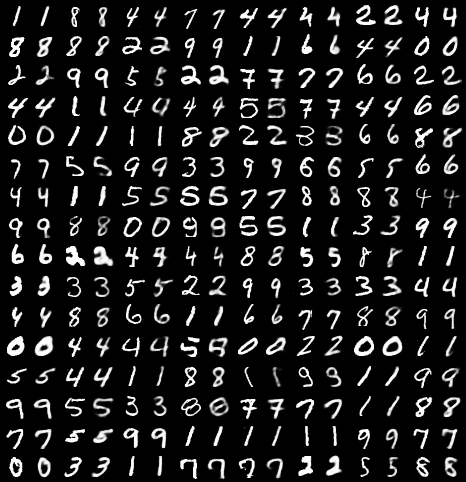 1 1 8 8 4 4 7 7 4 4 4 4 2 2 4 4
8 8 8 8 2 2 9 9 1 1 6 6 4 4 0 0
2 2 9 9 5 5 2 2 7 7 7 7 6 6 2 2
4 4 1 1 4 4 4 4 5 5 7 7 4 4 6 6
0 0 1 1 1 1 8 8 2 2 3 3 6 6 8 8
7 7 5 5 9 9 3 3 9 9 6 6 5 5 6 6
4 4 1 1 5 5 5 5 7 7 8 8 8 8 4 4
9 9 8 8 0 0 9 9 5 5 1 1 3 3 9 9
6 6 2 2 4 4 4 4 8 8 5 5 8 8 1 1
3 3 3 3 5 5 2 2 9 9 3 3 3 3 4 4
4 4 8 8 6 6 1 1 6 6 7 7 8 8 9 9
0 0 4 4 4 4 5 5 0 0 2 2 0 0 1 1
5 5 4 4 1 1 8 8 1 1 9 9 1 1 9 9
9 9 5 5 3 3 8 8 7 7 7 7 1 1 8 8
7 7 5 5 9 9 1 1 1 1 1 1 9 9 7 7
0 0 3 3 1 1 7 7 7 7 2 2 5 5 8 8